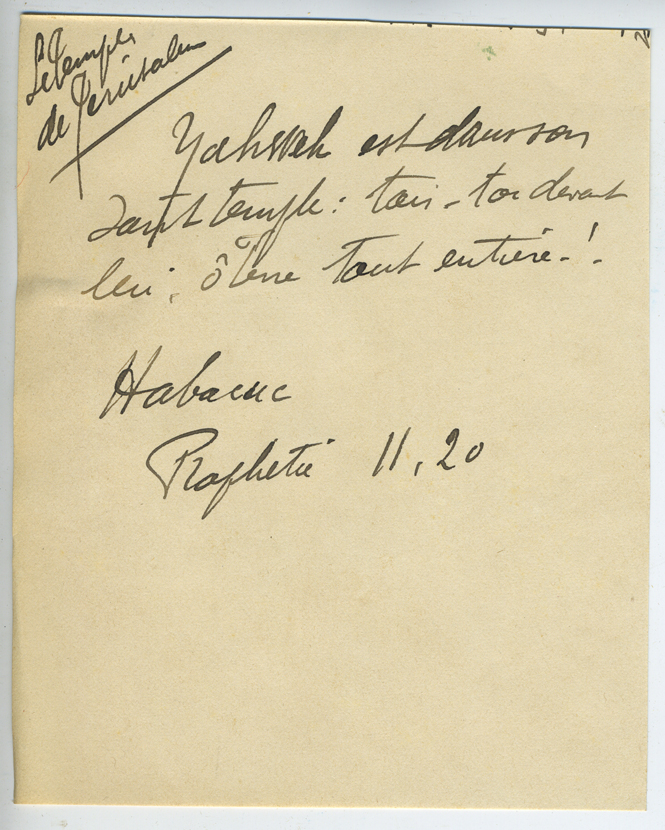 Le Temple
de Jérusalem
Yahweh est dans son
saint temple : tais-toi devant
lui, ô Terre tout entière !
Habacuc
Prophétie 11, 20